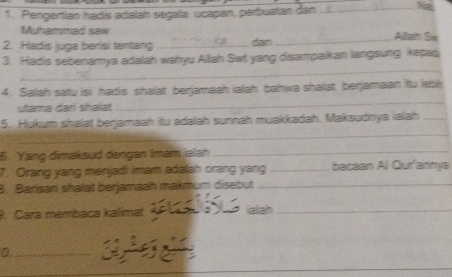 1. Pengertian hadis adalah segala ucapan, perbuatan dan
Muhammad saw
2. Hadis juga berisi tentang dan Allah Sw
3. Hadis sebenarnya adalah wahyu Allah Swt yang disampaikan langsung kepad
4. Salah satu isi hadis shalat berjamaah ialah bahwa shalat berjamaah itu lebih
utama dari shalat
5. Hukum shalat berjamaah itu adalah sunnah muakkadah. Maksudnya ialah
6. Yang dimaksud dengan Imam ialah
7. Orang yang menjadi imam adalah orang yang bacaan Al Qur'annya
8. Barisan shalat berjamaah makmum disebut
9. Cara membaca kalimat صَلَاةُ الْجَمَاعَةِ ialah
0.